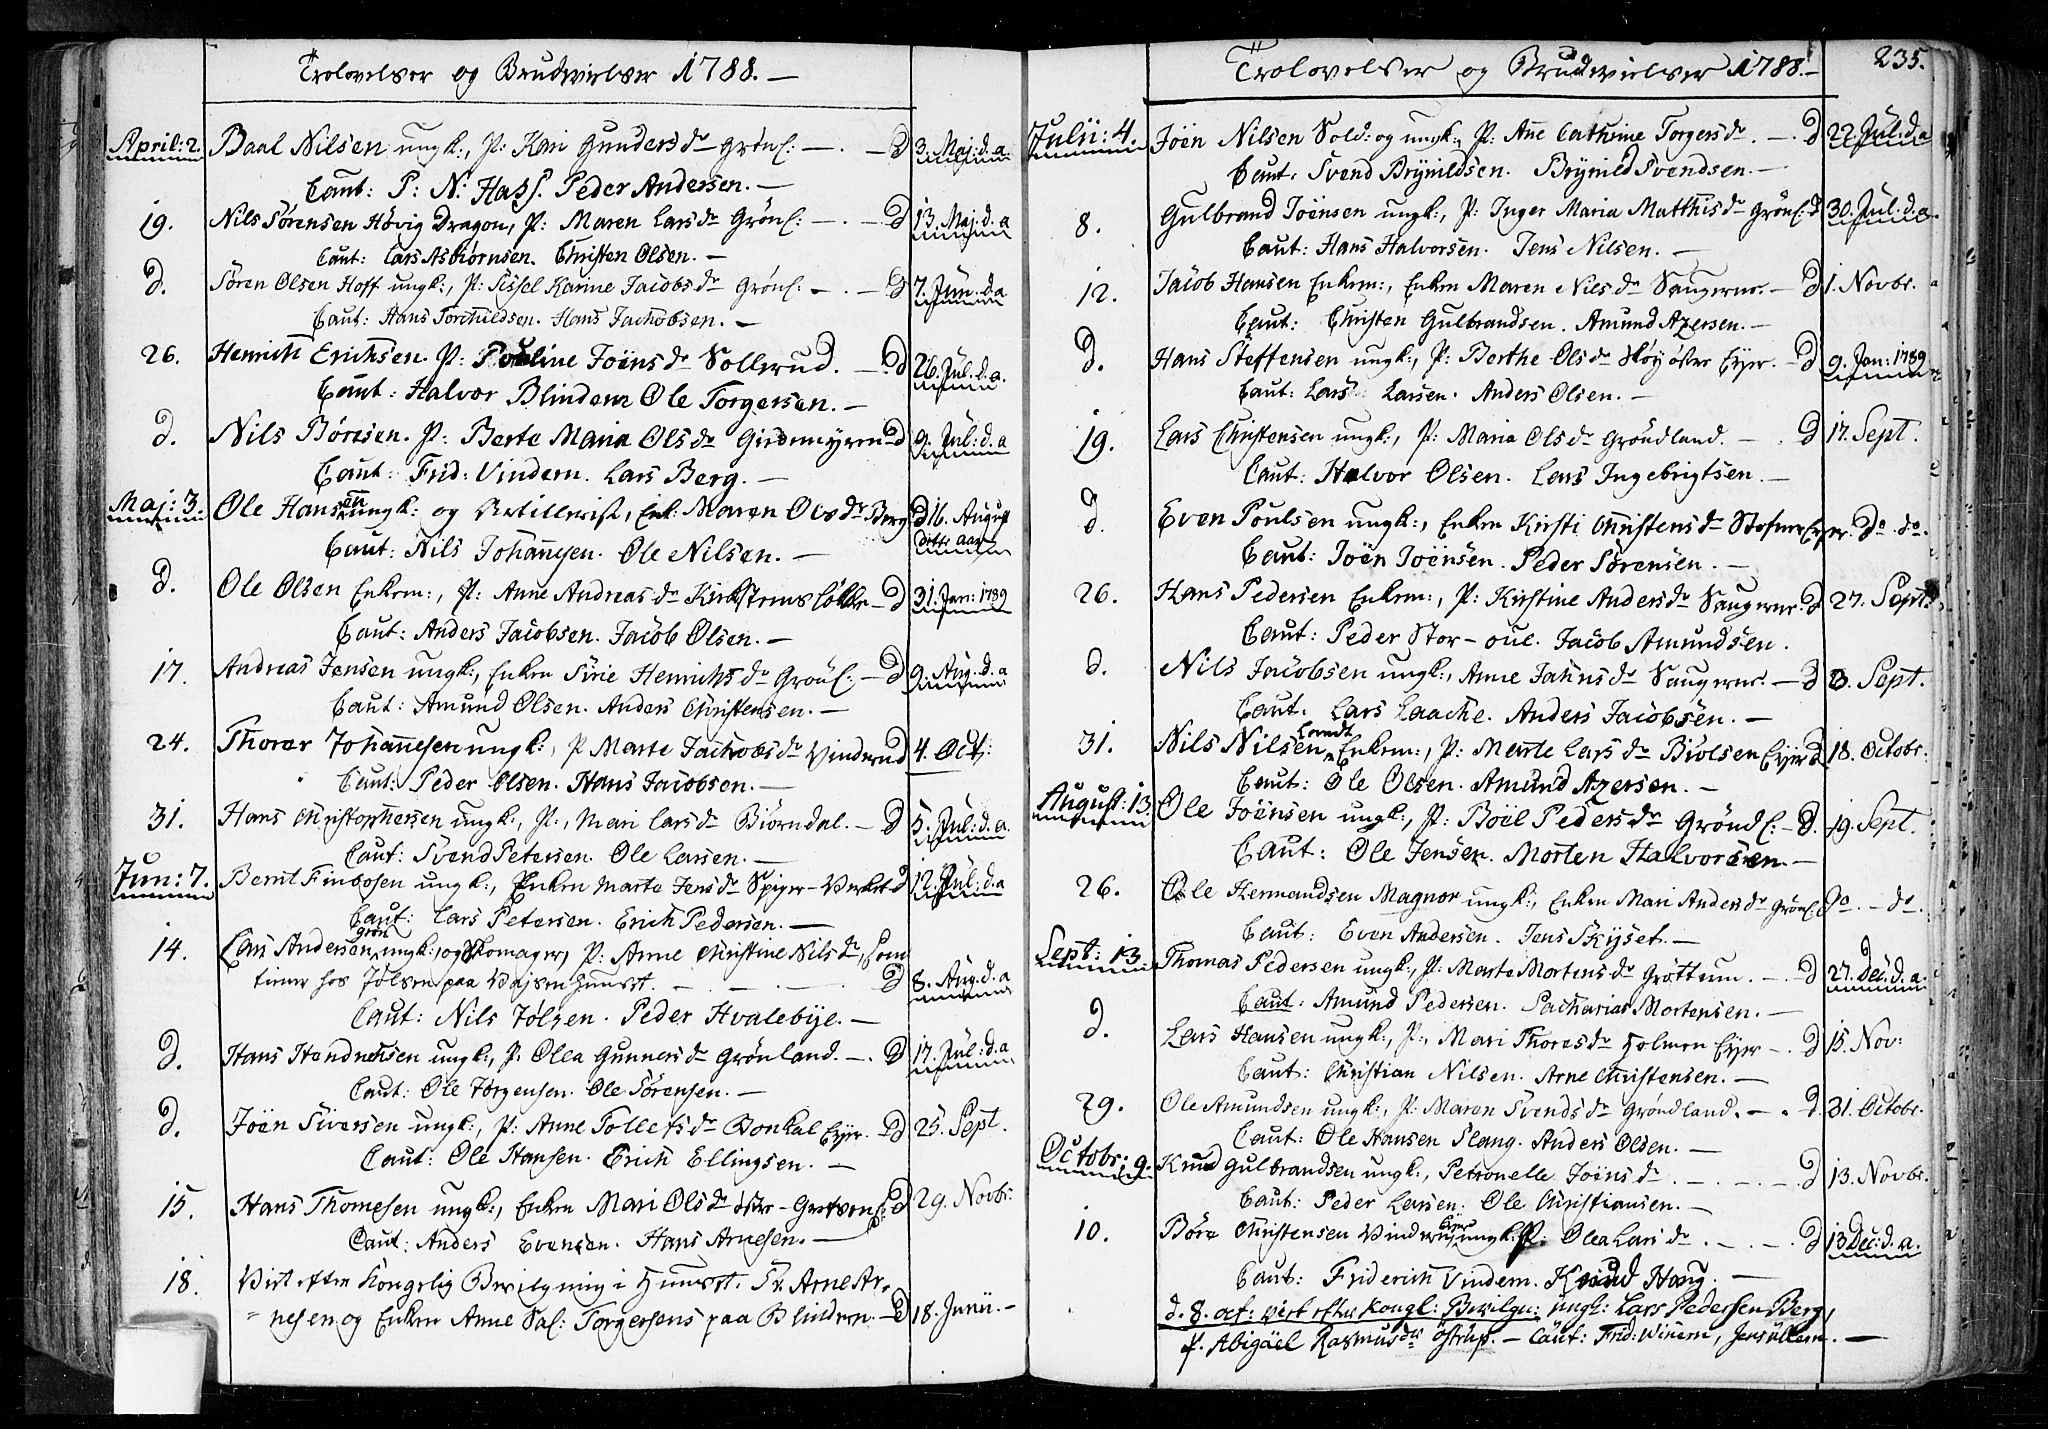 Trolovelser og Brudvielser 1788. —
April: 2. Baal Nilsen ungk:, P: Kari Gunders dr Grönl: — . — d 3. Maj: d. a
Caut: P: N: Hass. Peder Andersen. —
19. Nils Sörensen Hövig Dragon, P: Maren Lars dr Grönl: — . — d 13. Maj. d. a
Caut: Lars Asbiörnsen. Christen Olsen. —
d. Sören Olsen Hoff ungk:, P: Sissel Karine Jacobs dr Grönl: — . — d 7. Jun. d. a
Caut: Hans Torchildsen. Hans Jachobsen. —
26. Henrich Erichsen. P: Pouline Joens dr Sollerud. — d 26. Jul. d. a.
Caut: Halvor Blindern Ole Torgersen. —
d. Nils Böresen. P: Berte Maria Ols dr Giedemyren d 9. Jul: d. a
Caut: Frid: Vindern. Lars Berg. —
Maj: 3. Ole Hansen ungk: og Artillerist, Enk: Maren Ols dr Berg d 16. August
ditto aar
Caut: Nils Johannesen. Ole Nilsen. —
d. Ole Olsen Enkem:, P: Anne Andreas dr Kirkstens lökke — d 31. Jan: 1789
Caut: Anders Jacobsen. Jacob Olsen. —
17. Andreas Jensen ungk:, Enken Sirie Henrichs dr Grönl: — d 9. Aug. d. a
Caut: Amund Olsen. Anders Christensen. —
24. Thorer Johannesen ungk:, P Marte Jachobs dr Vinderud 4. Oct:
Caut: Peder Olsen. Hans Jacobsen. —
31. Hans Christophersen ungk:, P:, Mari Lars dr Biörndal. — d 5. Jul: d. a.
Caut: Svend Petersen. Ole Larsen. —
Jun: 7. Bernt Finbosen ungk:, Enken Marte Jens dr Spiger-Verket d 12. Jul: d. a
Caut: Lars Petersen. Erich Pedersen. —
14. Lars Andersen grön ungk:, og Skomager, P: Anne Christine Nils dr, Som
tiener hos Jölsen paa Vajsen Huuset. — . — . — d 8. Aug. d. a
Caut: Nils Jölsen. Peder Hvalebye. —
d. Hans Hendrichsen ungk:, P. Olea Gunners dr Grönland. — . d 17. Jul: d. a
Caut: Ole Jörgensen. Ole Sörensen. —
d. Joen Siversen ungk:, P: Anne Tollefs dr Bonkal Eyer. — d 25. Sept.
Caut: Ole Hansen. Erich Ellingsen. —
15. Hans Thomesen ungk:, Enken Mari Ols dr öster-Gretvens d 29. Novbr:
Caut: Anders Evensen. Hans Arnesen. —
18. Viet efter Kongelig Bevilgning i Huuset. Sr. Arne Ar-
nesen og Enken Anne Sal: Torgersens paa Blindern. — d 18. Junii. —
Trolovelser og Brudvielser 1788. —
235.
Julii: 4. Joen Nilsen Sold: og ungk:, P: Ane Cathrine Torgers dr. — . d 22. Jul. d. a
Caut. Svend Brynildsen. Brynild Svendsen. —
8. Gulbrand Joensen ungk:, P: Inger Maria Matthis dr Grönl: d 30. Jul. d. a.
Caut: Hans Halvorsen. Jens Nilsen. —
12. Jacob Hansen Enkem:, Enken Maren Nils dr Saugerne. — d 1. Novbr.
Caut: Christen Gulbrandsen. Amund Azersen. —
d. Hans Steffensen ungk:, P: Berthe Ols dr Höy ofter Eyer. — d 9. Jan: 1789
Caut: Lars Larsen. Anders Olsen. —
19. Lars Christensen ungk:, P: Maria Ols dr Gröndland. — . d 17. Sept.
Caut: Halvor Olsen. Lars Ingebrigtsen. —
d. Even Poulsen ungk:, Enken Kirsti Christens dr Stofner Eyer. do. do.
Caut: Joen Joensen. Peder Sörensen. —
26. Hans Pedersen Enkem:, P: Kirstine Anders dr Saugerne. d 27. Sept.
Caut: Peder Stor-oul. Jacob Amundsen.
d. Nils Jacobsen ungk:, Anne Jahns dr Saugerne. — d 3. Sept.
Caut. Lars Laache. Anders Jacobsen. —
31. Nils Nilsen Lovedt Enkem:, P: Marte Lars dr Biölsen Eyer d 18. Octobr:
Caut: Ole Olsen. Amund Azersen. —
August: 13. Ole Joensen ungk:, P: Boel Peders dr Gröndl: — d. 19. Sept.
Caut: Ole Jensen. Morten Halvorsen. —
26. Ole Hermandsen Magnor ungk:, Enken Mari Anders dr Grönl: do. — do.
Caut: Even Andersen. Jens Skyset. —
Sept: 13. Thomas Pedersen ungk:, P: Marte Mortens dr Gröttum. — . d 27. Dec. d. a.
Caut: Amund Pedersen. Zacharias Mortensen. —
d. Lars Hansen ungk:, P:, Mari Thores dr Holmen Eyer — . d 15. Nov:
Caut: Christian Nilsen. Arne Christensen. —
29. Ole Amundsen ungk:, P: Maren Svends dr Gröndland. — . d. 31. Octobr.
Caut: Ole Hansen Slang. Anders Olsen. —
Octobr: 9. Knud Gulbrandsen ungk:, Petronelle Joens dr. — . — . d 13. Novbr.
Caut: Peder Larsen: Ole Christiansen. —
10. Böre Christensen Vindern Eyer ungk: P: Olea Lars dr. — . — . d 13 Dec: d. a.
Caut: Friderich Vindern. Knud Haug. —
d. 8. oct: viet efter Kongl: Bevilgn: ungk: Lars Pedersen Berg,
P. Abigael Rasmus dr Östrup. — Caut: Frid: Winern, Jens Ullern. —